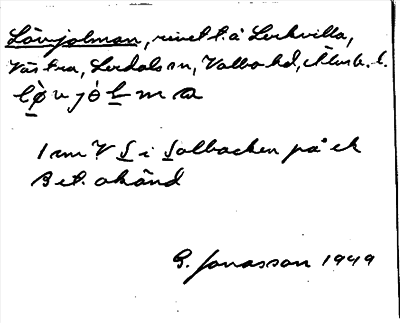 Lövjolman, rivet t. å Lockvilla,
Västra, Lerdals sn, Valbo hd, Älvsb. l.
l ø v j ò l m a
1 cm V S i Solbacken på ek
Bet. okänd
G. Jonasson 1949